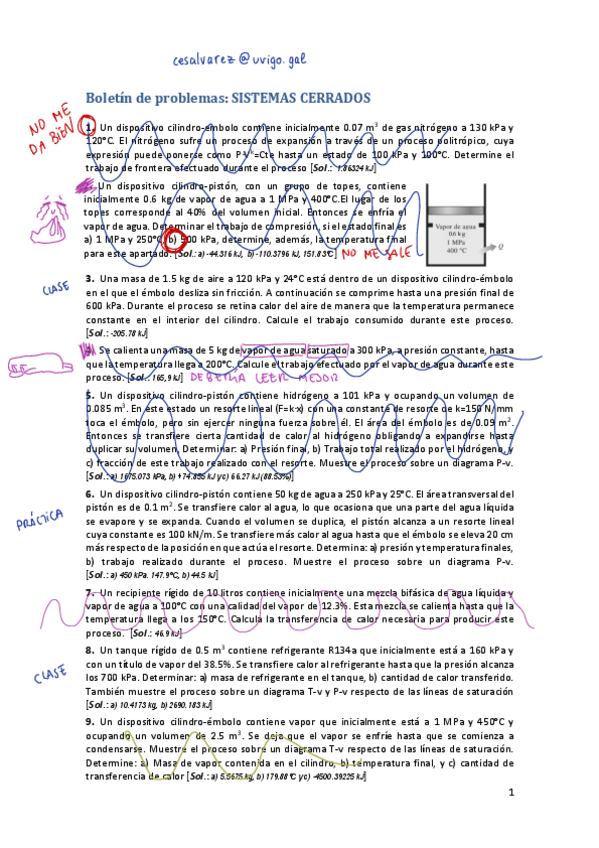 cesalvarez@uvigo.gal
Boletín de problemas: SISTEMAS CERRADOS
NO ME
DA BIEN
1. Un dispositivo cilindro-émbolo contiene inicialmente 0.07 m³ de gas nitrógeno a 130 kPa y
120°C. El nitrógeno sufre un proceso de expansión a través de un proceso politrópico, cuya
expresión puede ponerse como P·Vᵏ=Cte hasta un estado de 100 kPa y 100°C. Determine el
trabajo de frontera efectuado durante el proceso [Sol.: 1.86324 kJ]
Un dispositivo cilindro-pistón, con un grupo de topes, contiene
inicialmente 0.6 kg de vapor de agua a 1 MPa y 400°C.El lugar de los
topes corresponde al 40% del volumen inicial. Entonces se enfría el
vapor de agua. Determinar el trabajo de compresión, si el estado final es
a) 1 MPa y 250°C, b) 500 kPa, determine, además, la temperatura final
para este apartado. [Sol.: a) -44.316 kJ, b) -110.3796 kJ, 151.83°C] NO ME SALE
Vapor de agua
0.6 kg
1 MPa
400 °C
Q
CLASE
3. Una masa de 1.5 kg de aire a 120 kPa y 24°C está dentro de un dispositivo cilindro-émbolo
en el que el émbolo desliza sin fricción. A continuación se comprime hasta una presión final de
600 kPa. Durante el proceso se retina calor del aire de manera que la temperatura permanece
constante en el interior del cilindro. Calcule el trabajo consumido durante este proceso.
[Sol.: -205.78 kJ]
Se calienta una masa de 5 kg de vapor de agua saturado a 300 kPa, a presión constante, hasta
que la temperatura llega a 200°C. Calcule el trabajo efectuado por el vapor de agua durante este
proceso. [Sol.: 165,9 kJ] DEBERIA LEER MEJOR
5. Un dispositivo cilindro-pistón contiene hidrógeno a 101 kPa y ocupando un volumen de
0.085 m³. En este estado un resorte lineal (F=k·x) con una constante de resorte de k=150 N/mm
toca el émbolo, pero sin ejercer ninguna fuerza sobre él. El área del émbolo es de 0.09 m².
Entonces se transfiere cierta cantidad de calor al hidrógeno obligando a expandirse hasta
duplicar su volumen, Determinar: a) Presión final, b) Trabajo total realizado por el hidrógeno, y
c) fracción de este trabajo realizado con el resorte. Muestre el proceso sobre un diagrama P-v.
[Sol.: a) 1675.073 kPa, b) +74.855 kJ y c) 66.27 kJ (88.53%)]
PRÁCTICA
6. Un dispositivo cilindro-pistón contiene 50 kg de agua a 250 kPa y 25°C. El área transversal del
pistón es de 0.1 m². Se transfiere calor al agua, lo que ocasiona que una parte del agua líquida
se evapore y se expanda. Cuando el volumen se duplica, el pistón alcanza a un resorte lineal
cuya constante es 100 kN/m. Se transfiere más calor al agua hasta que el émbolo se eleva 20 cm
más respecto de la posición en que actúa el resorte. Determina: a) presión y temperatura finales,
b) trabajo realizado durante el proceso. Muestre el proceso sobre un diagrama P-v.
[Sol.: a) 450 kPa. 147.9°C, b) 44.5 kJ]
7. Un recipiente rígido de 10 litros contiene inicialmente una mezcla bifásica de agua líquida y
vapor de agua a 100°C con una calidad del vapor de 12.3%. Esta mezcla se calienta hasta que la
temperatura llega a los 150°C. Calcula la transferencia de calor necesaria para producir este
proceso. [Sol.: 46.9 kJ]
CLASE
8. Un tanque rígido de 0.5 m³ contiene refrigerante R134a que inicialmente está a 160 kPa y
con un título de vapor del 38.5%. Se transfiere calor al refrigerante hasta que la presión alcanza
los 700 kPa. Determinar: a) masa de refrigerante en el tanque, b) cantidad de calor transferido.
También muestre el proceso sobre un diagrama T-v y P-v respecto de las líneas de saturación
[Sol.: a) 10.4173 kg, b) 2690.183 kJ]
9. Un dispositivo cilindro-émbolo contiene vapor que inicialmente está a 1 MPa y 450°C y
ocupando un volumen de 2.5 m³. Se deja que el vapor se enfríe hasta que se comienza a
condensarse. Muestre el proceso sobre un diagrama T-v respecto de las líneas de saturación.
Determine: a) Masa de vapor contenida en el cilindro, b) temperatura final, y c) cantidad de
transferencia de calor [Sol.: a) 5.5675 kg, b) 179.88°C y c) -4500.39225 kJ]
1